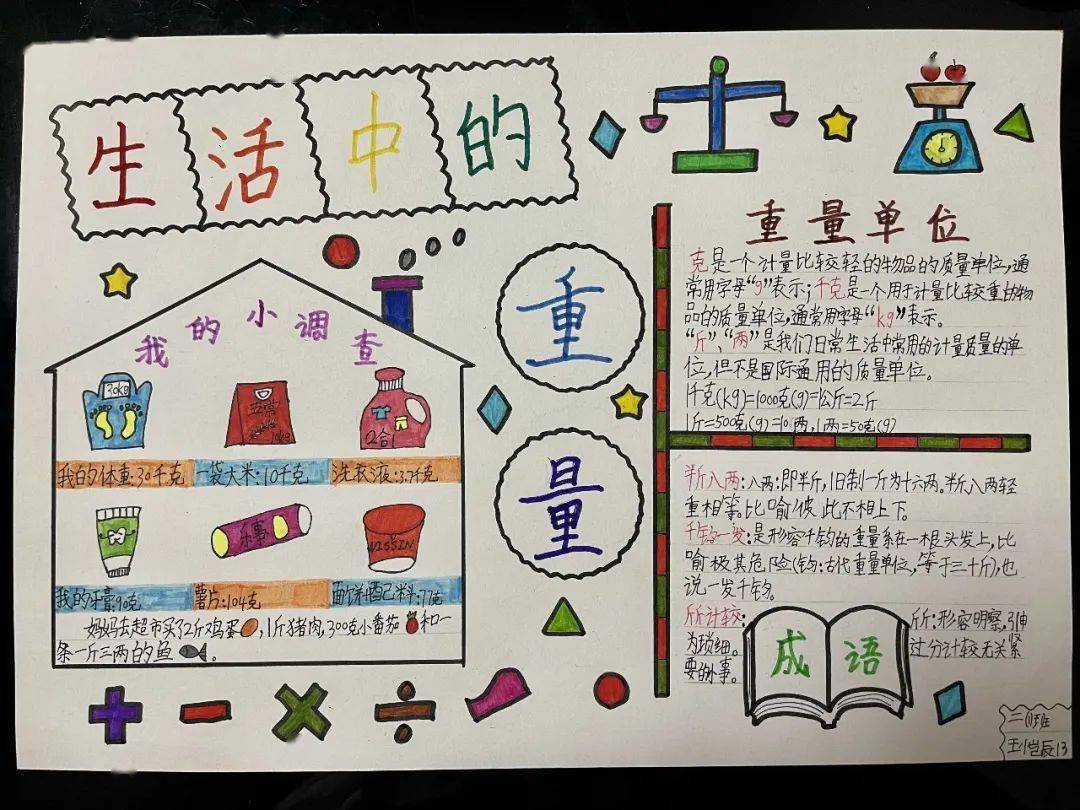 生活中的
重量
我的小调查
30kg
五常
10kg
2合1
我的体重:30千克
一袋大米:10千克
洗衣液:3.7千克
乐事
NISSIN
我的牙膏:90克
薯片:104克
面饼+酉己料:77克
妈妈去超市买了2斤鸡蛋,1斤猪肉,300克小番茄和一
条一斤三两的鱼。
重量单位
克是一个计量比较轻的物品的质量单位,通
常用字母“g”表示;千克是一个用于计量比较重的物
品的质量单位,通常用字母“kg”表示。
“斤”、“两”是我们日常生活中常用的计量质量的单
位,但不是国际通用的质量单位。
1千克(kg)=1000克(g)=1公斤=2斤
1斤=500克(g)=10两,1两=50克(g)
半斤八两:八两:即半斤,旧制一斤为十六两。半斤八两轻
重相等。比喻彼此不相上下。
千钧一发:是形容千钧的重量系在一根头发上,比
喻极其危险(钧:古代重量单位,等于三十斤),也
说一发千钧。
斤斤计较:斤斤:形容明察,引伸
为琐细。过分计较无关紧
要的小事。
成语
二(1)班
13